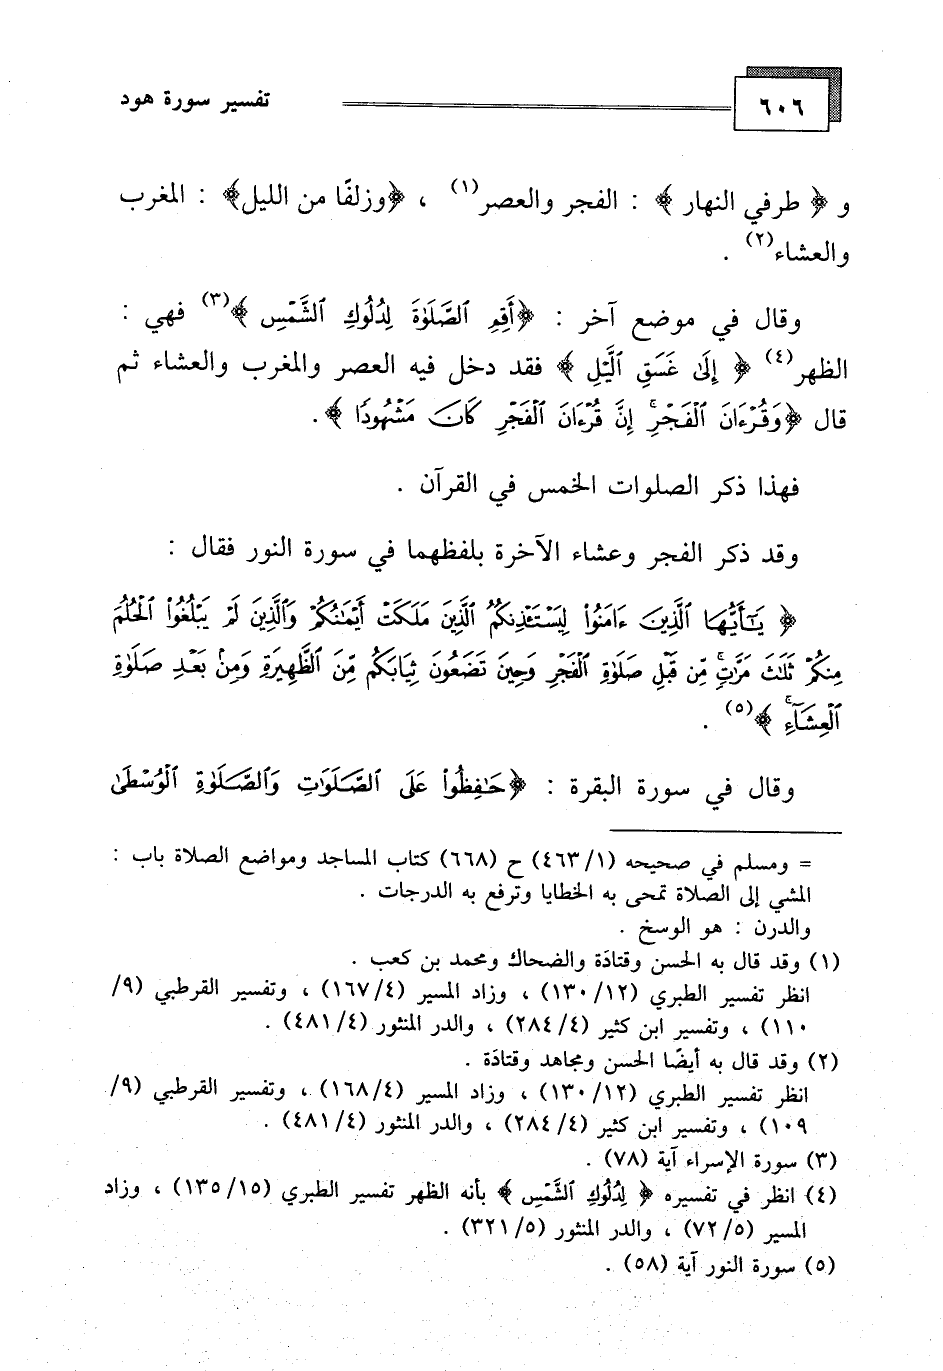 ٦٠٦
تفسير سورة هود
و ﴿ طرفي النهار ﴾ : الفجر والعصر(١) ، ﴿وزلفًا من الليل﴾ : المغرب
والعشاء(٢) .
وقال في موضع آخر : ﴿أَقِمِ ٱلصَّلَوٰةَ لِدُلُوكِ ٱلشَّمْسِ ﴾(٣) فهي :
الظهر(٤) ﴿ إِلَىٰ غَسَقِ ٱلَّيْلِ ﴾ فقد دخل فيه العصر والمغرب والعشاء ثم
قال ﴿وَقُرْءَانَ ٱلْفَجْرِۖ إِنَّ قُرْءَانَ ٱلْفَجْرِ كَانَ مَشْهُودًا ﴾ .
فهذا ذكر الصلوات الخمس في القرآن .
وقد ذكر الفجر وعشاء الآخرة بلفظهما في سورة النور فقال :
﴿ يَٰٓأَيُّهَا ٱلَّذِينَ ءَامَنُوا۟ لِيَسْتَـْٔذِنكُمُ ٱلَّذِينَ مَلَكَتْ أَيْمَٰنُكُمْ وَٱلَّذِينَ لَمْ يَبْلُغُوا۟ ٱلْحُلُمَ
مِنكُمْ ثَلَٰثَ مَرَّٰتٍۚ مِّن قَبْلِ صَلَوٰةِ ٱلْفَجْرِ وَحِينَ تَضَعُونَ ثِيَابَكُم مِّنَ ٱلظَّهِيرَةِ وَمِنۢ بَعْدِ صَلَوٰةِ
ٱلْعِشَآءِۚ ﴾(٥) .
وقال في سورة البقرة : ﴿حَٰفِظُوا۟ عَلَى ٱلصَّلَوَٰتِ وَٱلصَّلَوٰةِ ٱلْوُسْطَىٰ
= ومسلم في صحيحه (٤٦٣/١) ح (٦٦٨) كتاب المساجد ومواضع الصلاة باب :
المشي إلى الصلاة تمحى به الخطايا وترفع به الدرجات .
والدرن : هو الوسخ .
(١) وقد قال به الحسن وقتادَة والضحاك ومحمد بن كعب .
انظر تفسير الطبري (١٣٠/١٢) ، وزاد المسير (١٦٧/٤) ، وتفسير القرطبي (٩/
١١٠) ، وتفسير ابن كثير (٢٨٤/٤) ، والدر المنثور (٤٨١/٤) .
(٢) وقد قال به أيضًا الحسن ومجاهد وقتادَة .
انظر تفسير الطبري (١٣٠/١٢) ، وزاد المسير (١٦٨/٤) ، وتفسير القرطبي (٩/
١٠٩) ، وتفسير ابن كثير (٢٨٤/٤) ، والدر المنثور (٤٨١/٤) .
(٣) سورة الإسراء آية (٧٨) .
(٤) انظر في تفسيره ﴿ لِدُلُوكِ ٱلشَّمْسِ ﴾ بأنه الظهر تفسير الطبري (١٣٥/١٥) ، وزاد
المسير (٧٢/٥) ، والدر المنثور (٣٢١/٥) .
(٥) سورة النور آية (٥٨) .